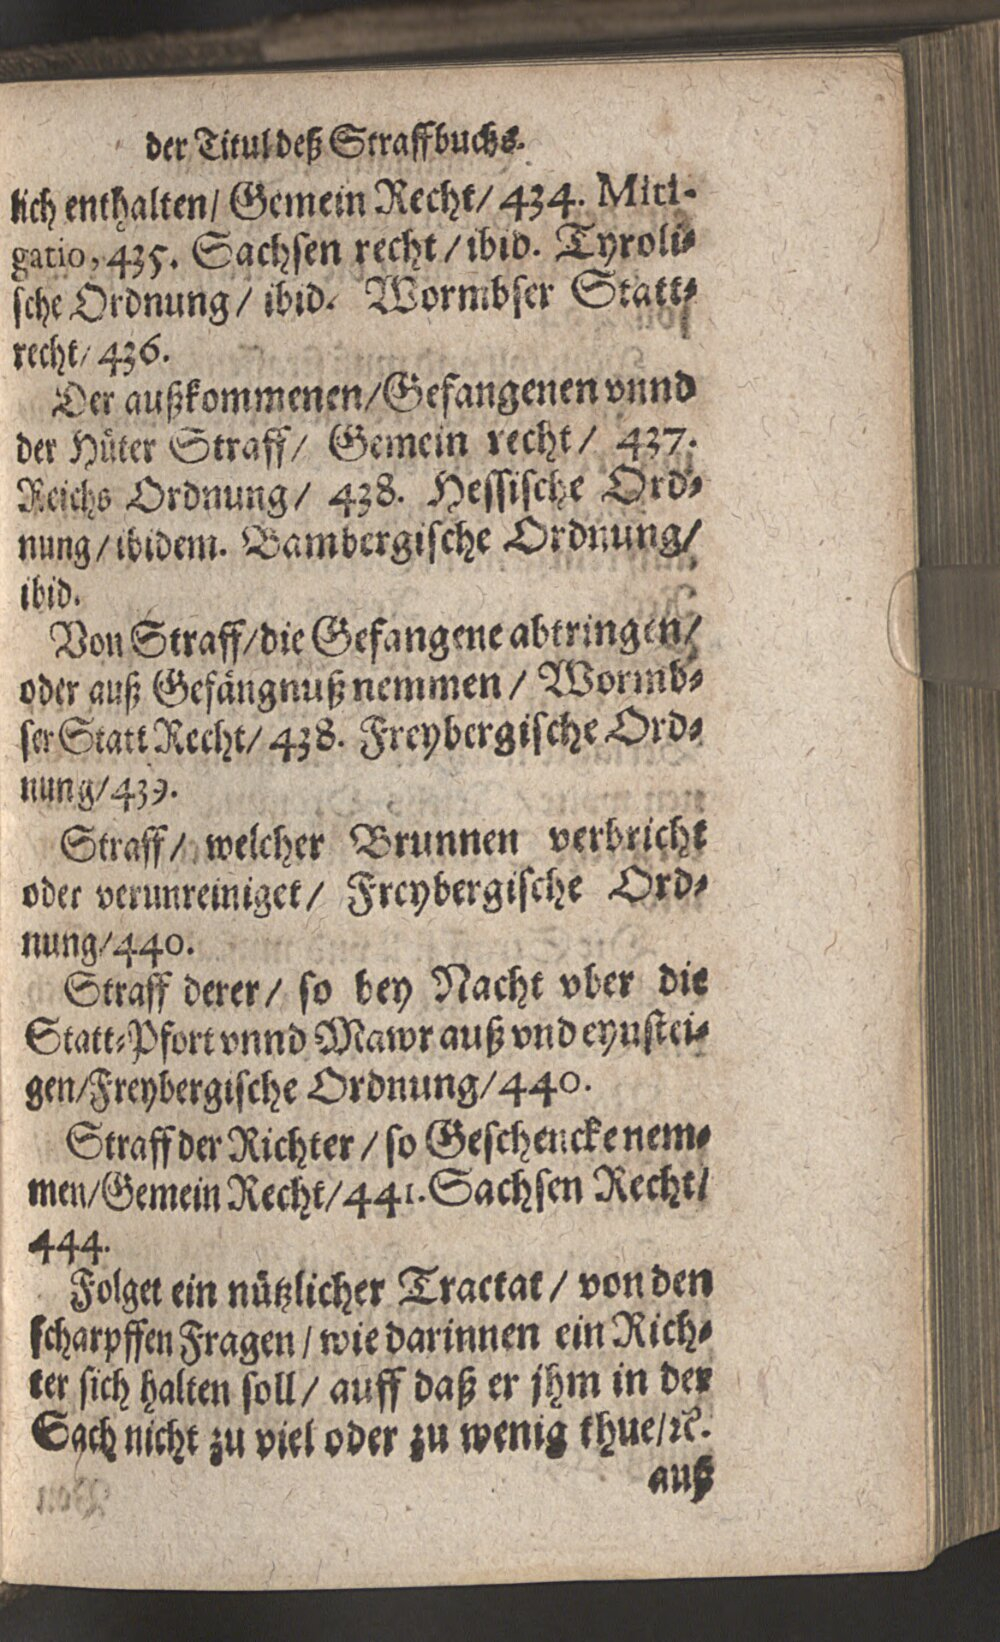 der Titul deß Straffbuchs.
lich enthalten/ Gemein Recht/ 434. Miti-
gatio, 435. Sachsen recht/ ibid. Tyroli-
sche Ordnung/ ibid. Wormbser Statt-
recht/ 436.
Der außkommenen/ Gefangenen vnnd
der Hüter Straff/ Gemein recht/ 437.
Reichs Ordnung/ 438. Hessische Ord-
nung/ ibidem. Bambergische Ordnung/
ibid.
Von Straff/ die Gefangene abtringen/
oder auß Gefängnuß nemmen/ Wormb-
ser Statt Recht/ 438. Freybergische Ord-
nung/ 439.
Straff/ welcher Brunnen verbricht
oder verunreiniget/ Freybergische Ord-
nung/ 440.
Straff derer/ so bey Nacht vber die
Statt-Pfort vnnd Mawr auß vnd eynstei-
gen/ Freybergische Ordnung/ 440.
Straff der Richter/ so Geschencke nem-
men/ Gemein Recht/ 441. Sachsen Recht/
444.
Folget ein nützlicher Tractat/ von den
scharpffen Fragen/ wie darinnen ein Rich-
ter sich halten soll/ auff daß er jhm in der
Sach nicht zu viel oder zu wenig thue/ ꝛc.
auß